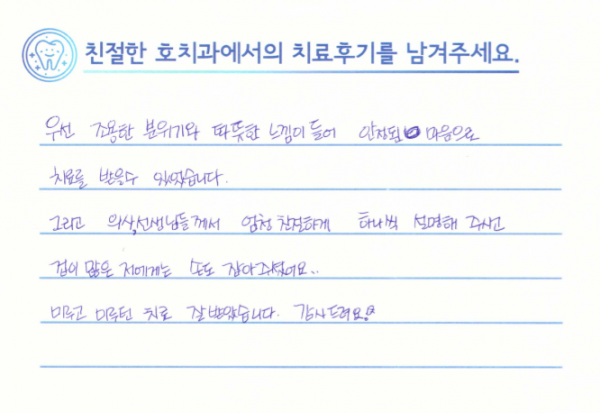 친절한 호치과에서의 치료후기를 남겨주세요.
우선 조용한 분위기와 따뜻한 느낌이 들어 안정된 마음으로
치료를 받을수 있었습니다.
그리고 의사선생님들께서 엄청 친절하게 하나씩 설명해 주시고
겁이 많은 저에게는 손도 잡아주셨어요..
미루고 미루던 치료 잘받았습니다. 감사드려요